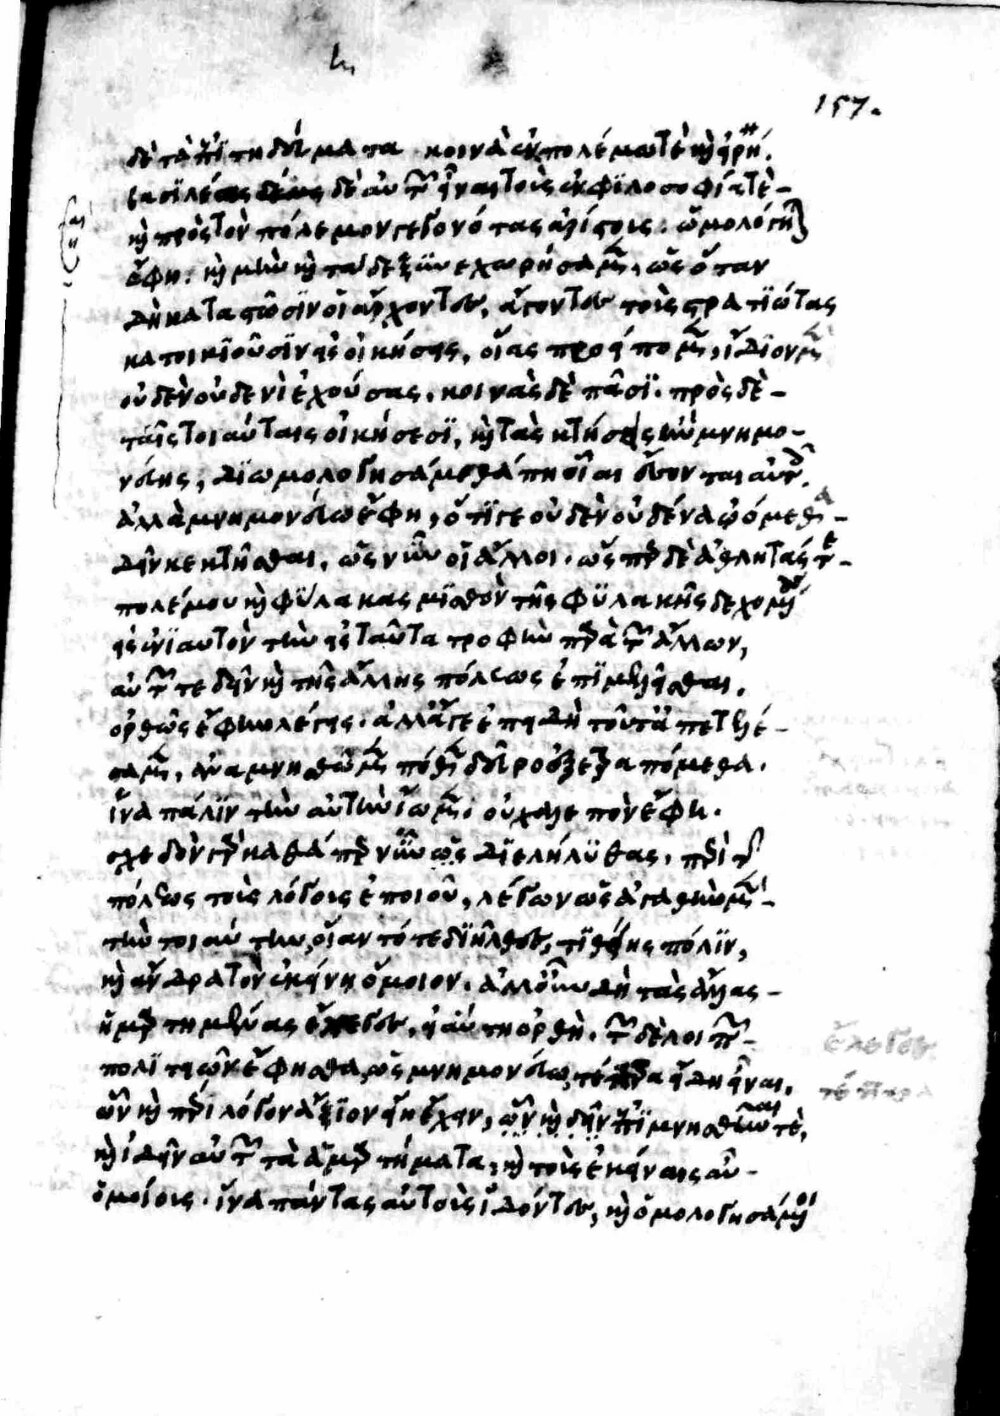 157.
δὲ τὰ ἐπιτηδεύματα κοινὰ ἐν πολέμω τὲ καὶ εἰρή.
βασϊλέας δὲ αὐτῶν εἶναι τοὺς ἐν φϊλοσοφία τὲ-
καὶ πρὸς τὸν πόλεμον γεγονότας ἀρίστους. ὡμολόγηται
ἔφη. καὶ μὴν καὶ τάδε ξυνεχωρήσαμεν, ὡς ὅταν
δὴ καταστῶσϊν οἱ ἄρχοντες, ἄγοντες τοὺς στρατϊώτας
κατοικϊοῦσϊν εἰς οἰκήσεις, οἵας προείπομεν, ἴδϊον μὲν
οὐδὲν οὐδενὶ ἐχούσας. κοινὰς δὲ πᾶσϊ. πρὸς δὲ-
ταῖς τοιαύταις οἰκήσεσϊ, καὶ τὰς κτήσεις εἰ μνημο-
νεύεις, δϊωμολογησάμεθά που οἷαι ἔσονται αὐτοῖς.
ἀλλὰ μνημονεύω ἔφη, ὅτϊ γε οὐδὲν οὐδένα ὠόμεθα-
δεῖν κεκτῆσθαι, ὡς νῦν οἱ ἄλλοι. ὥσπερ δὲ ἀθλητάς τε-
πολέμου καὶ φύλακας μϊσθὸν τῆς φϋλακῆς δεχομένους
εἰς ἐνϊαυτὸν τὴν εἰς ταῦτα τροφὴν παρὰ τῶν ἄλλων,
αὐτῶν τε δεῖν καὶ τῆς ἄλλης πόλεως ἐπϊμελεῖσθαι.
ὀρθῶς ἔφην λέγεις. ἀλλ' ἄγε ἐπειδὴ τοῦτ' ἀπετελέ-
σαμεν, ἀναμνησθῶμεν πόθεν δεῦρο ἐξετραπόμεθα.
ἵνα πάλϊν τὴν αὐτὴν ἴωμεν. οὐ χαλεπὸν ἔφη.
σχεδὸν γὰρ καθάπερ νῦν ὡς δϊεληλϋθὼς, περὶ τῆς
πόλεως τοὺς λόγους ἐποιοῦ, λέγων ὡς ἀγαθὴν μὲν-
τὴν τοιαύτην, οἵαν τότε δϊῆλθες, τϊθείης πόλϊν,
καὶ ἄνδρα τὸν ἐκείνη ὅμοιον. ἀλλ' οὖν δὴ τὰς ἄλλας-
ἡμαρτημένας ἔλεγες, εἰ αὕτη ὀρθὴ. τῶν δὲ λοιπῶν-
πολϊτειῶν ἔφησθα, ὡς μνημονεύω, τέτταρα εἴδη εἶναι.
ὧν καὶ περὶ λόγον ἄξϊον εἴη ἔχειν, ὧν καὶ δεῖν ἐπϊμνησθῆναι τὲ,
καὶ ἰδεῖν αὐτῶν τὰ ἁμαρτήματα, καὶ τοὺς ἐκείναις αὖ-
ὁμοίους. ἵνα πάντας αὐτοὺς ἰδόντες, καὶ ὁμολογησάμενοι
ἔλεγες
τέτταρα